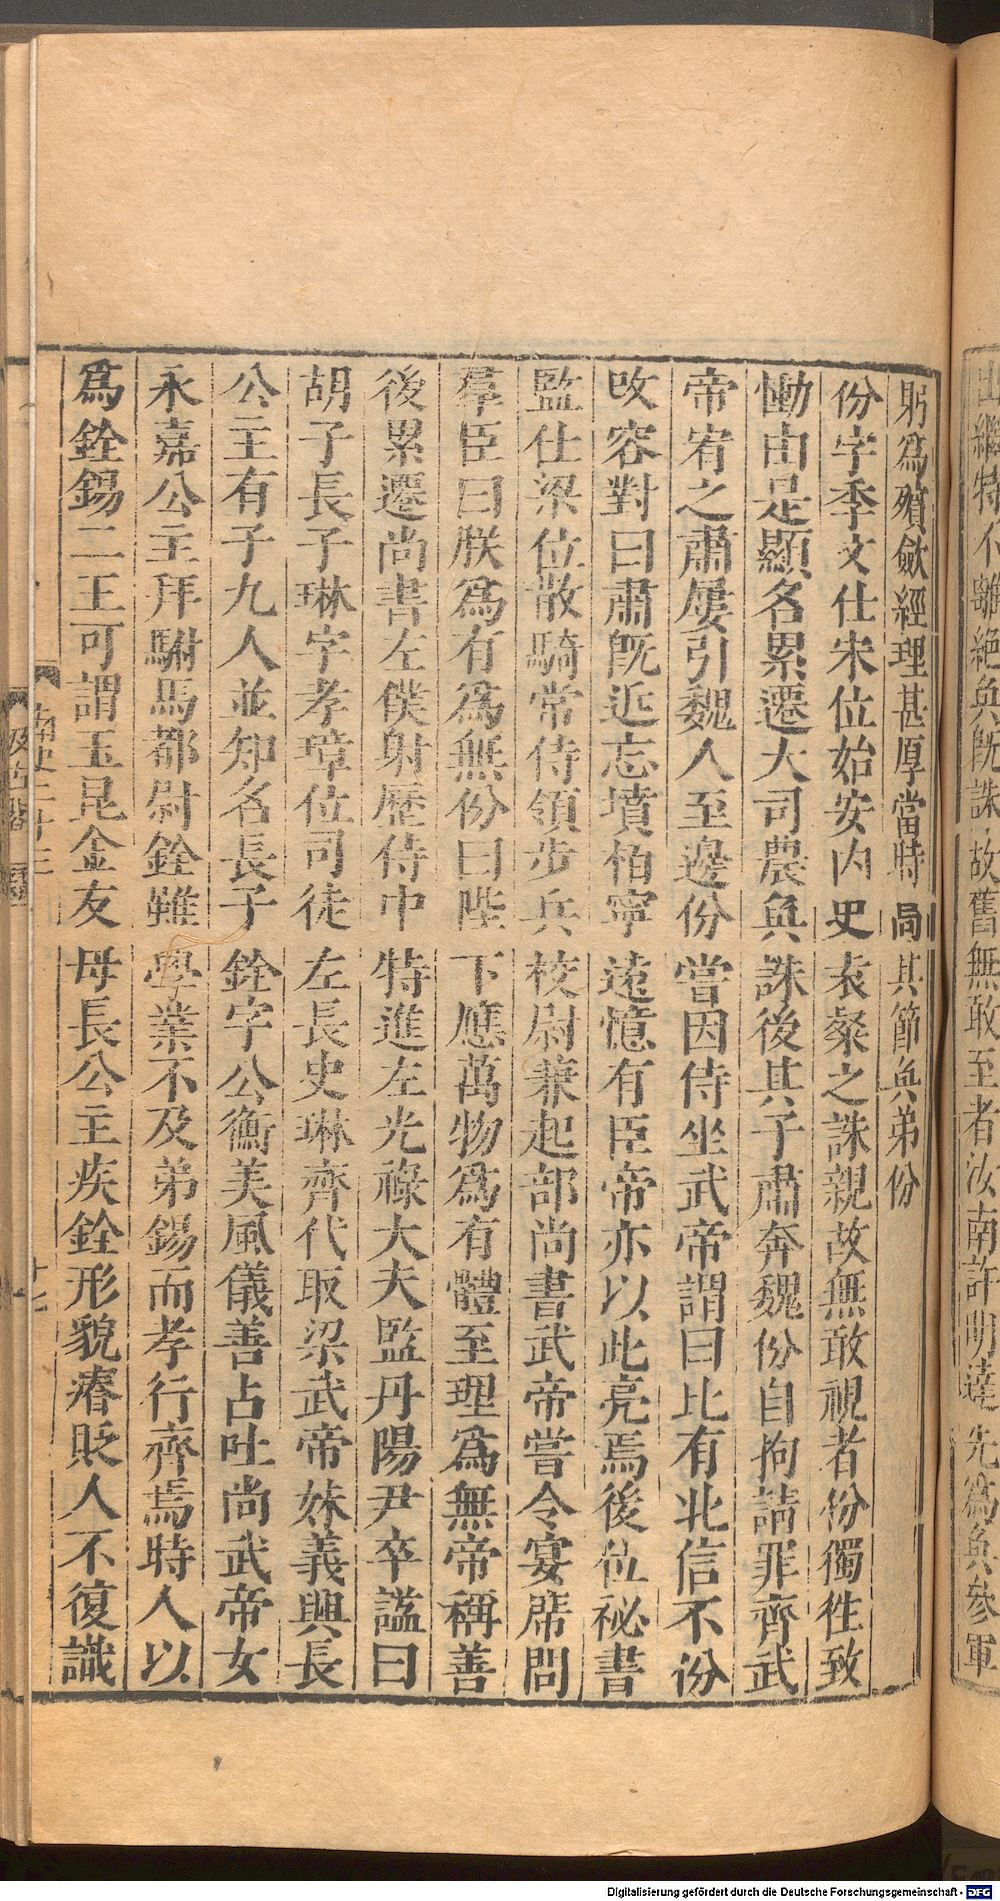 出繼特不離絕奐既誅故舊無敢至者汝南許明達先爲奐參軍
躬爲殯斂經理甚厚當時高其節奐弟份
份字季文仕宋位始安內史袁粲之誅親故無敢視者份獨徃致
慟由是顯名累遷大司農奐誅後其子肅奔魏份自拘請罪齊武
帝宥之肅屢引魏人至邊份嘗因侍坐武帝謂曰比有北信不份
改容對曰肅旣近忘墳柏寧遠憶有臣帝亦以此亮焉後位祕書
監仕梁位散騎常侍領步兵校尉兼起部尚書武帝嘗令宴席問
羣臣曰朕爲有爲無份曰陛下應萬物爲有體至理爲無帝稱善
後累遷尚書左僕射歷侍中特進左光祿大夫監丹陽尹卒謚曰
胡子長子琳字孝璋位司徒左長史琳齊代取梁武帝妹義興長
公主有子九人並知名長子銓字公衡美風儀善占吐尚武帝女
永嘉公主拜駙馬都尉銓雖學業不及弟錫而孝行齊焉時人以
爲銓錫二王可謂玉昆金友母長公主疾銓形貌瘠貶人不復識
南史二十三
十七
汲古閣
Digitalisierung gefördert durch die Deutsche Forschungsgemeinschaft - DFG